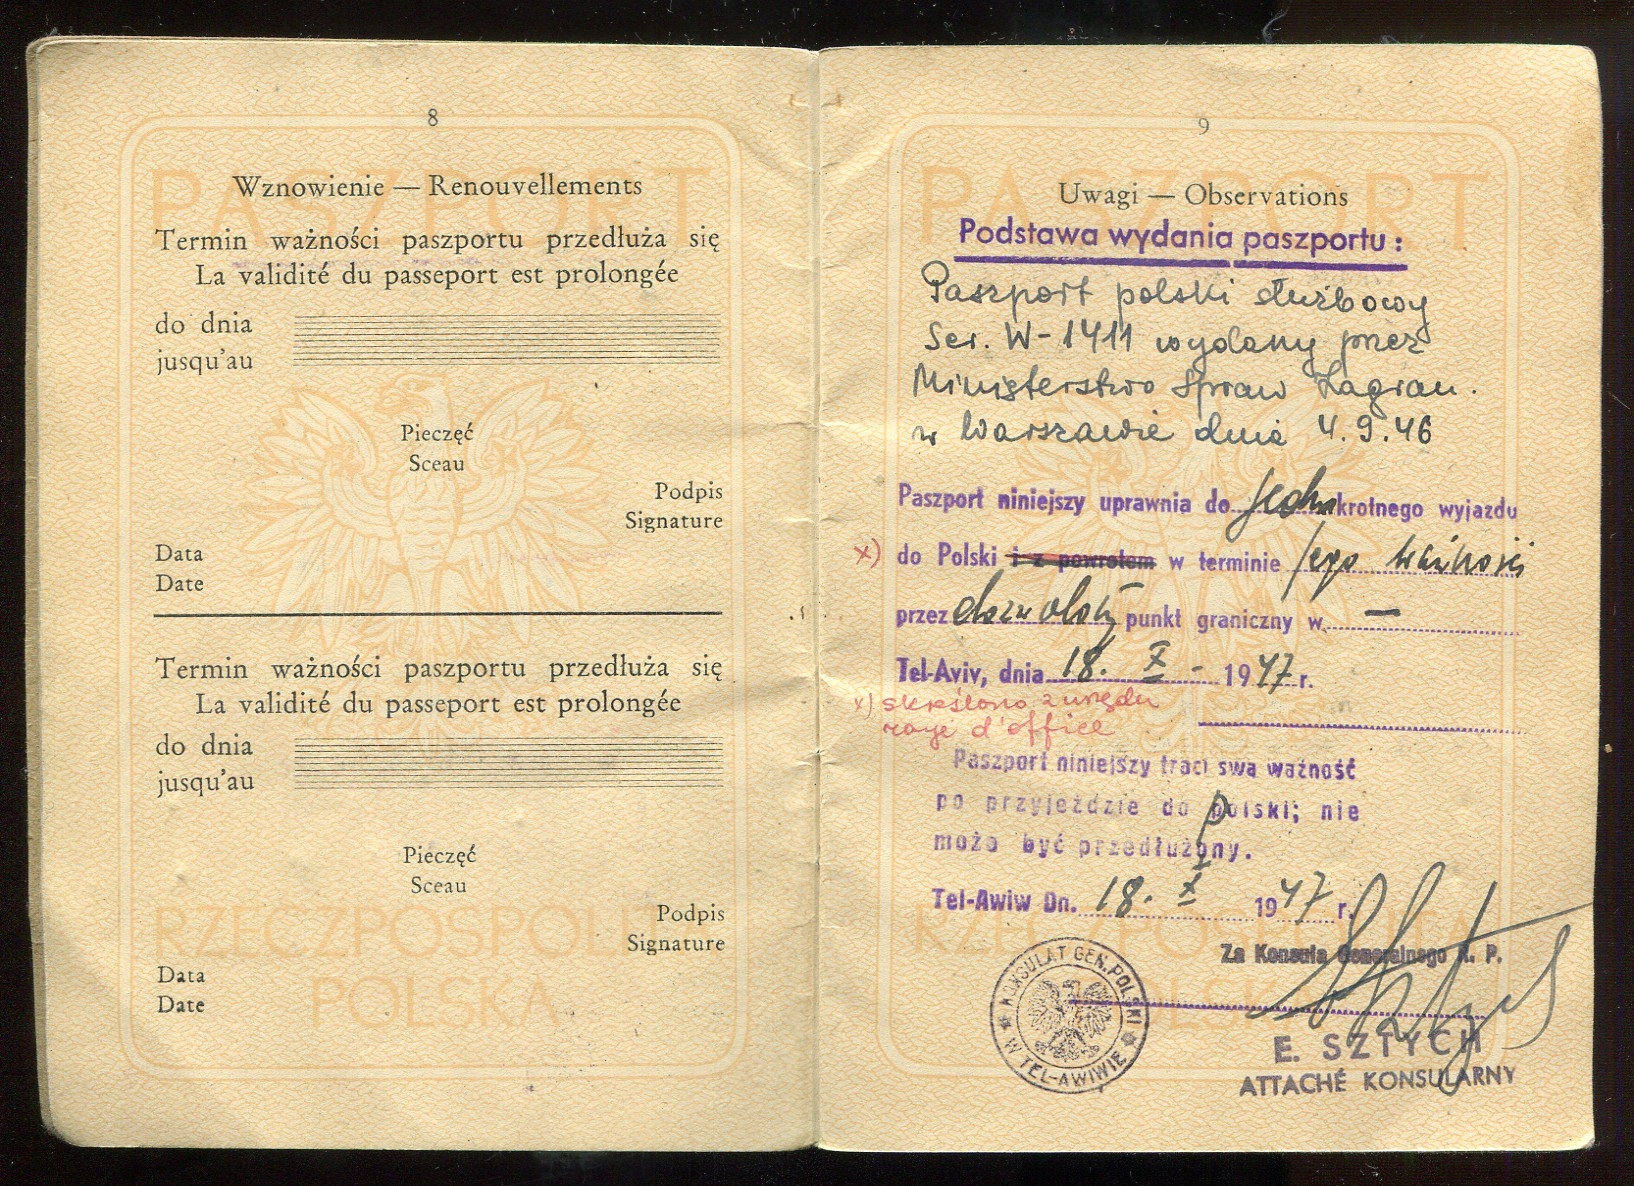 8
PASZPORT
Wznowienie — Renouvellements
Termin ważności paszportu przedłuża się
La validité du passeport est prolongée
do dnia
jusqu'au
Pieczęć
Sceau
Podpis
Signature
Data
Date
Termin ważności paszportu przedłuża się
La validité du passeport est prolongée
do dnia
jusqu'au
Pieczęć
Sceau
RZECZPOSPOLITA
Podpis
Signature
Data
Date
POLSKA
9
PASZPORT
Uwagi — Observations
Podstawa wydania paszportu:
Paszport polski służbowy
Ser. W-1411 wydany przez
Ministerstwo Spraw Zagran.
w Warszawie dnia 4.9.46
Paszport niniejszy uprawnia do jednokrotnego wyjazdu
x) do Polski i z powrotem w terminie jego ważności
przez dozwolony punkt graniczny w —
Tel-Aviv, dnia 18. X - 1947 r.
x) skreślono z urzędu
rayé d'office
Paszport niniejszy traci swą ważność
po przyjeździe do Polski; nie
może być przedłużony.
Tel-Awiw Dn. 18. X 1947 r.
RZECZPOSPOLITA
Za Konsula Generalnego R. P.
KONSULAT GEN. POLSKI
W TEL-AWIWIE
POLSKA
E. SZTYCH
ATTACHÉ KONSULARNY